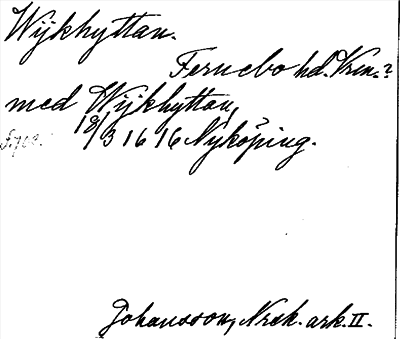 Wijkhyttan.
Fernebo hd. Vrm.?
med Wijkhyttan,
18/3 1616 Nyköping.
Johansson, Norsk. ark. II.